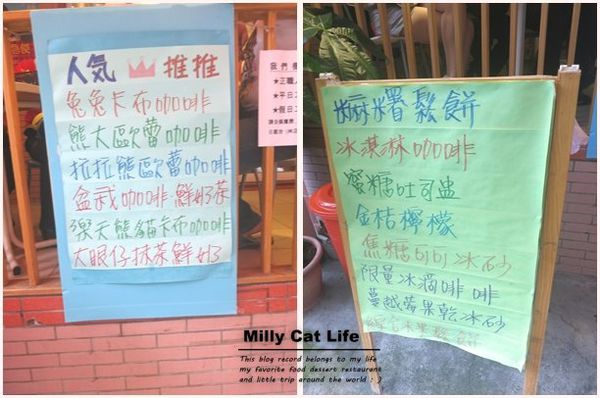 人気 推推
兔兔卡布咖啡
熊大歐蕾咖啡
拉拉熊歐蕾咖啡
盆栽咖啡 鮮奶茶
彈天熊貓卡布咖啡
大眼仔抹茶鮮奶
我們
★正職
★平日
★假日
麻糬鬆餅
冰淇淋咖啡
蜜糖吐司盅
金桔檸檬
焦糖可可冰沙
限量冰滴咖啡
蔓越莓果乾冰沙
綜合水果鬆餅
Milly Cat Life
This blog record belongs to my life
my favorite food dessert restaurant
and little trip around the world : )